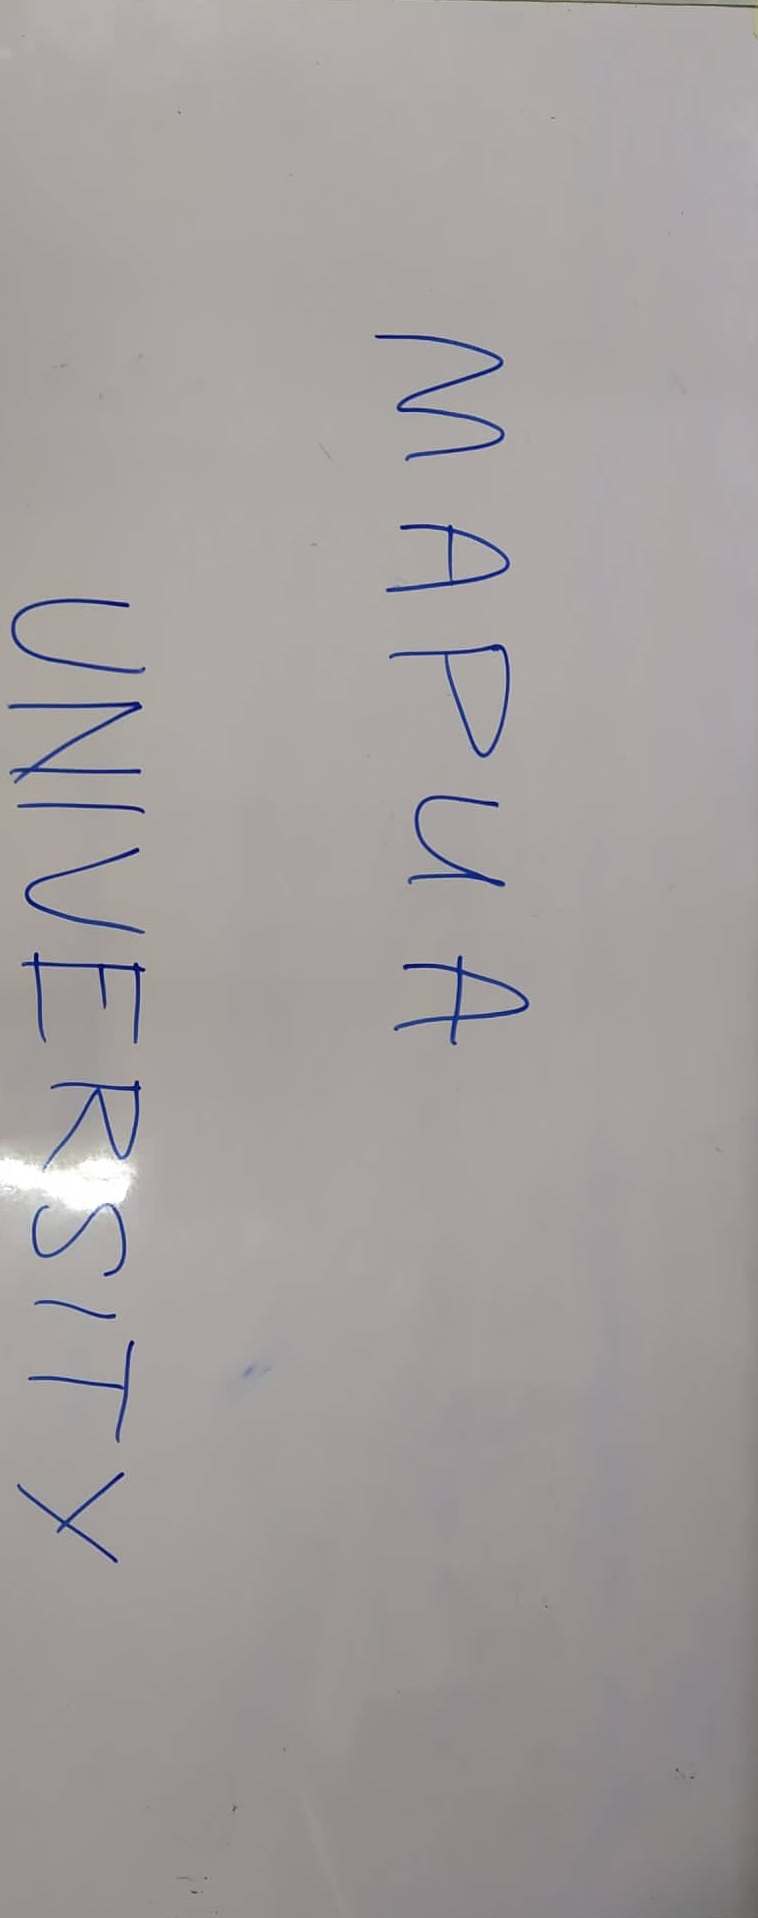 MAPUA
UNIVERSITY